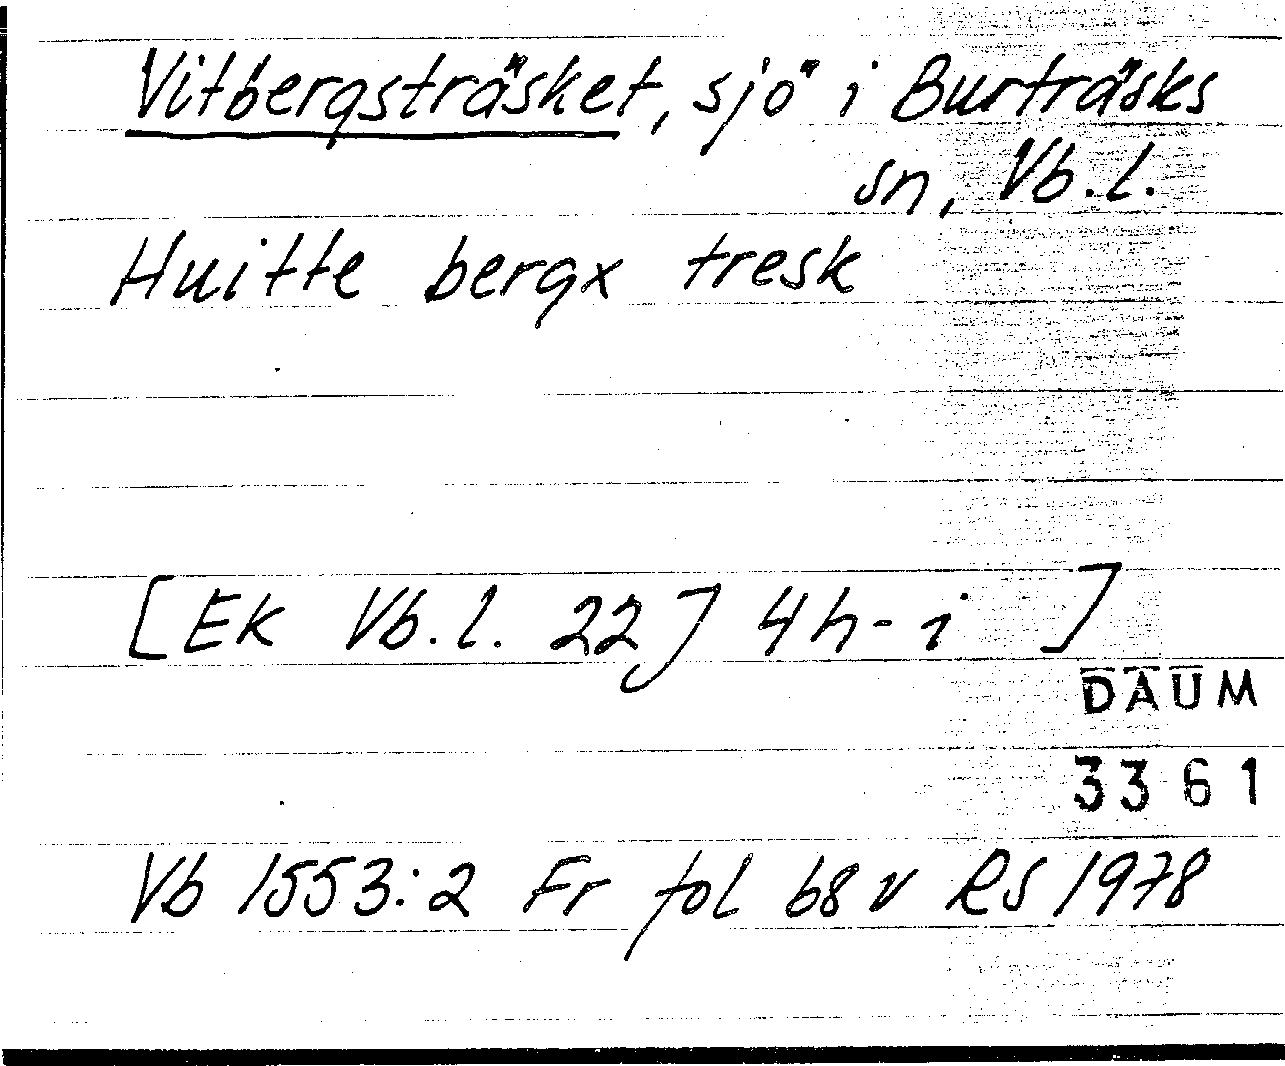 Vitbergsträsket, sjö i Burträsks
sn, Vb.l.
Huitte bergx tresk
[Ek Vb.l. 22J 4h-i ]
DAUM
3361
Vb 1553:2 Fr fol 68 v RS 1978